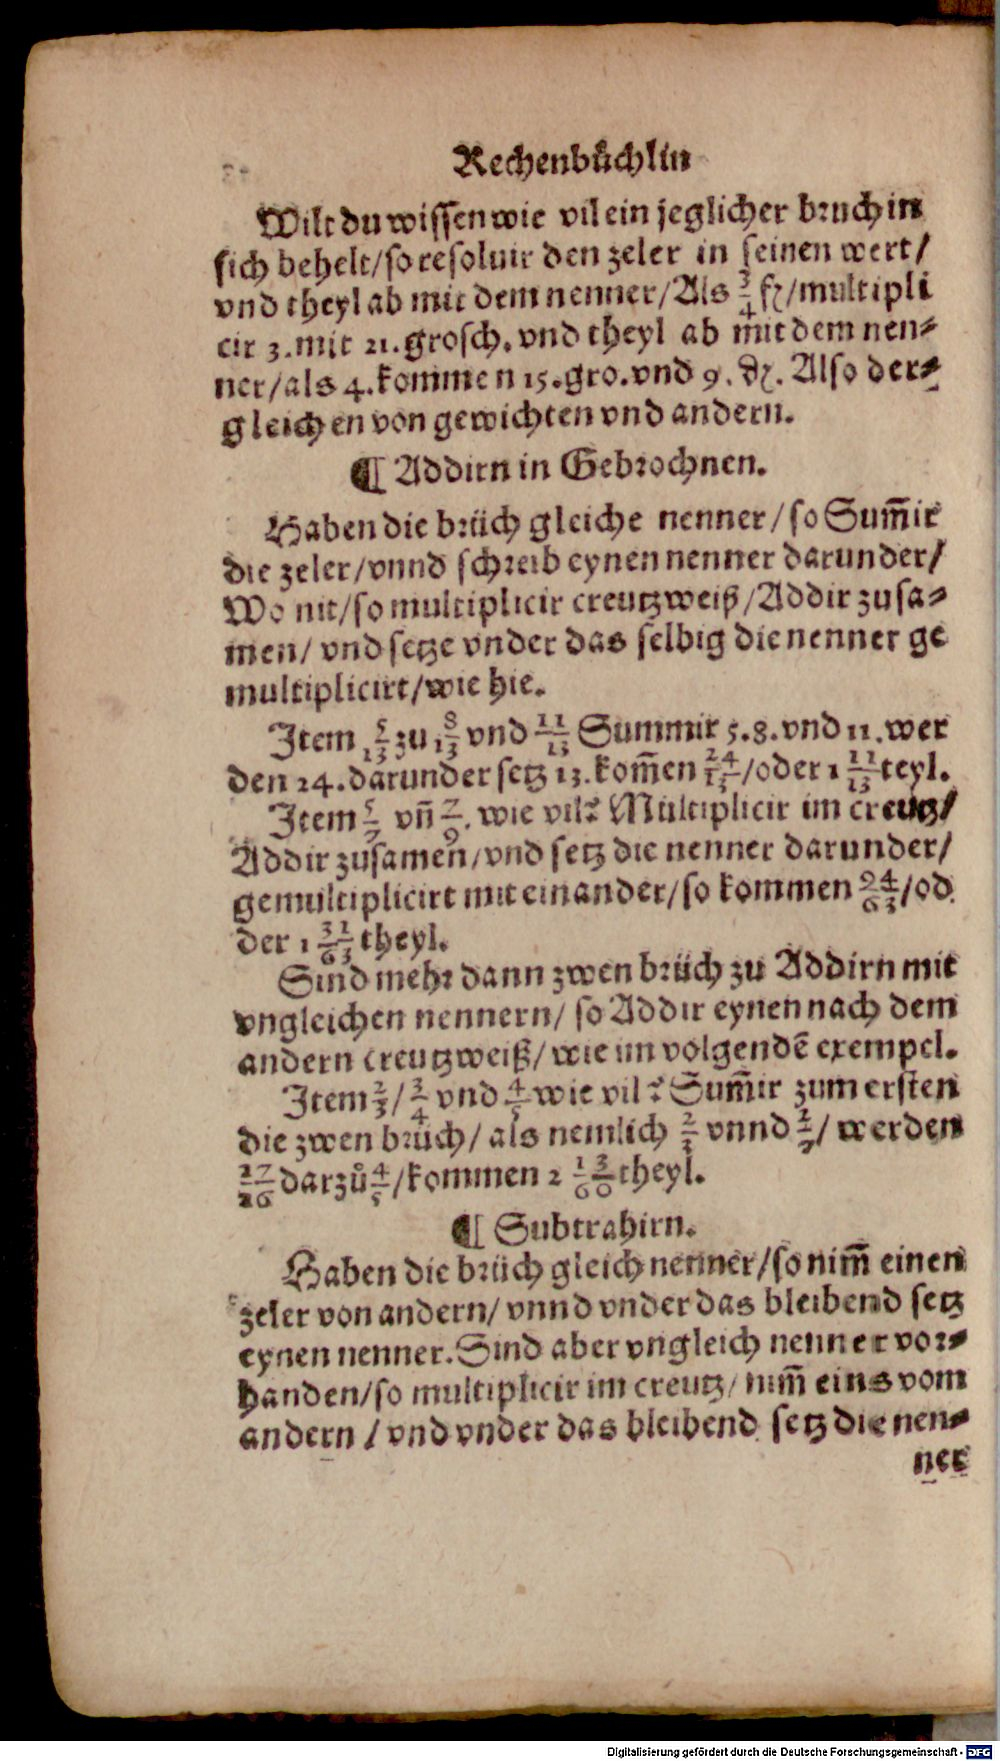 Rechenbůchlin
Wilt du wissen wie vil ein jeglicher bruch in
sich behelt/so resoluir den zeler in seinen wert/
vnd theyl ab mit dem nenner/Als 3/4 fl/multipli
cir 3.mit 21.grosch.vnd theyl ab mit dem nen-
ner/als 4.kommen 15.gro.vnd 9. ₰. Also der-
gleichen von gewichten vnd andern.
¶ Addirn in Gebrochnen.
Haben die brüch gleiche nenner/so Sum̃ir
die zeler/vnnd schreib eynen nenner darunder/
Wo nit/so multiplicir creutzweiß/Addir zusa-
men/ vnd setze vnder das selbig die nenner ge
multiplicirt/wie hie.
Item 5/13 zu 8/13 vnd 11/13 Summir 5.8.vnd 11.wer
den 24.darunder setz 13.kom̃en 24/13/oder 1 11/13 teyl.
Item 5/7 vñ 7/9. wie vil? Multiplicir im creutz/
Addir zusamen/vnd setz die nenner darunder/
gemultiplicirt mit einander/so kommen 94/63/od
der 1 31/63 theyl.
Sind mehr dann zwen brüch zu Addirn mit
vngleichen nennern/ so Addir eynen nach dem
andern creutzweiß/wie im volgendē exempel.
Item 2/3/ 3/4 vnd 4/5 wie vil? Sum̃ir zum ersten
die zwen brüch/ als nemlich vnnd / werden
darzů 4/5/kommen 2 13/60 theyl.
¶ Subtrahirn.
Haben die brüch gleich nenner/so nim̃ einen
zeler von andern/ vnnd vnder das bleibend setz
eynen nenner.Sind aber vngleich nenner vor-
handen/so multiplicir im creutz/nim̃ eins vom
andern / vnd vnder das bleibend setz die nen-
ner
Digitalisierung gefördert durch die Deutsche Forschungsgemeinschaft - DFG